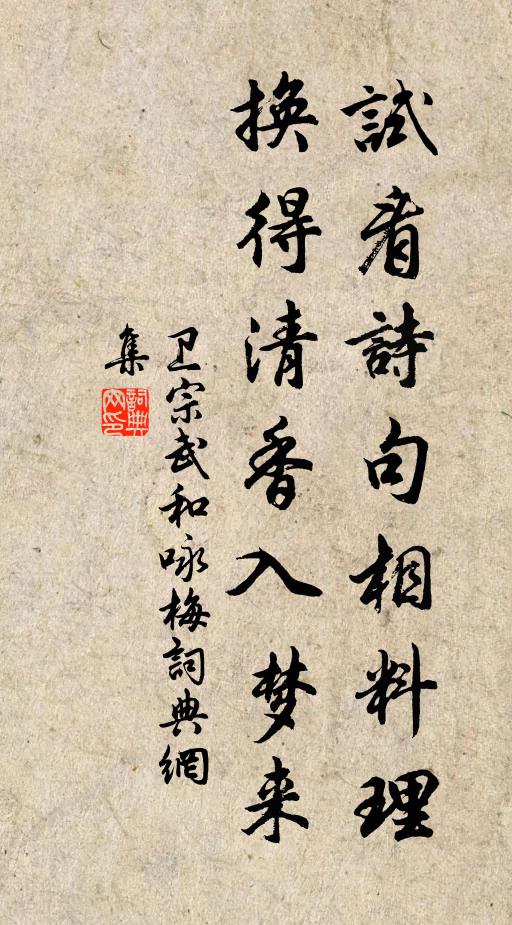 試看詩句相料理
換得清香入梦来
卫宗武和咏梅詞典網
集
詞典
网印